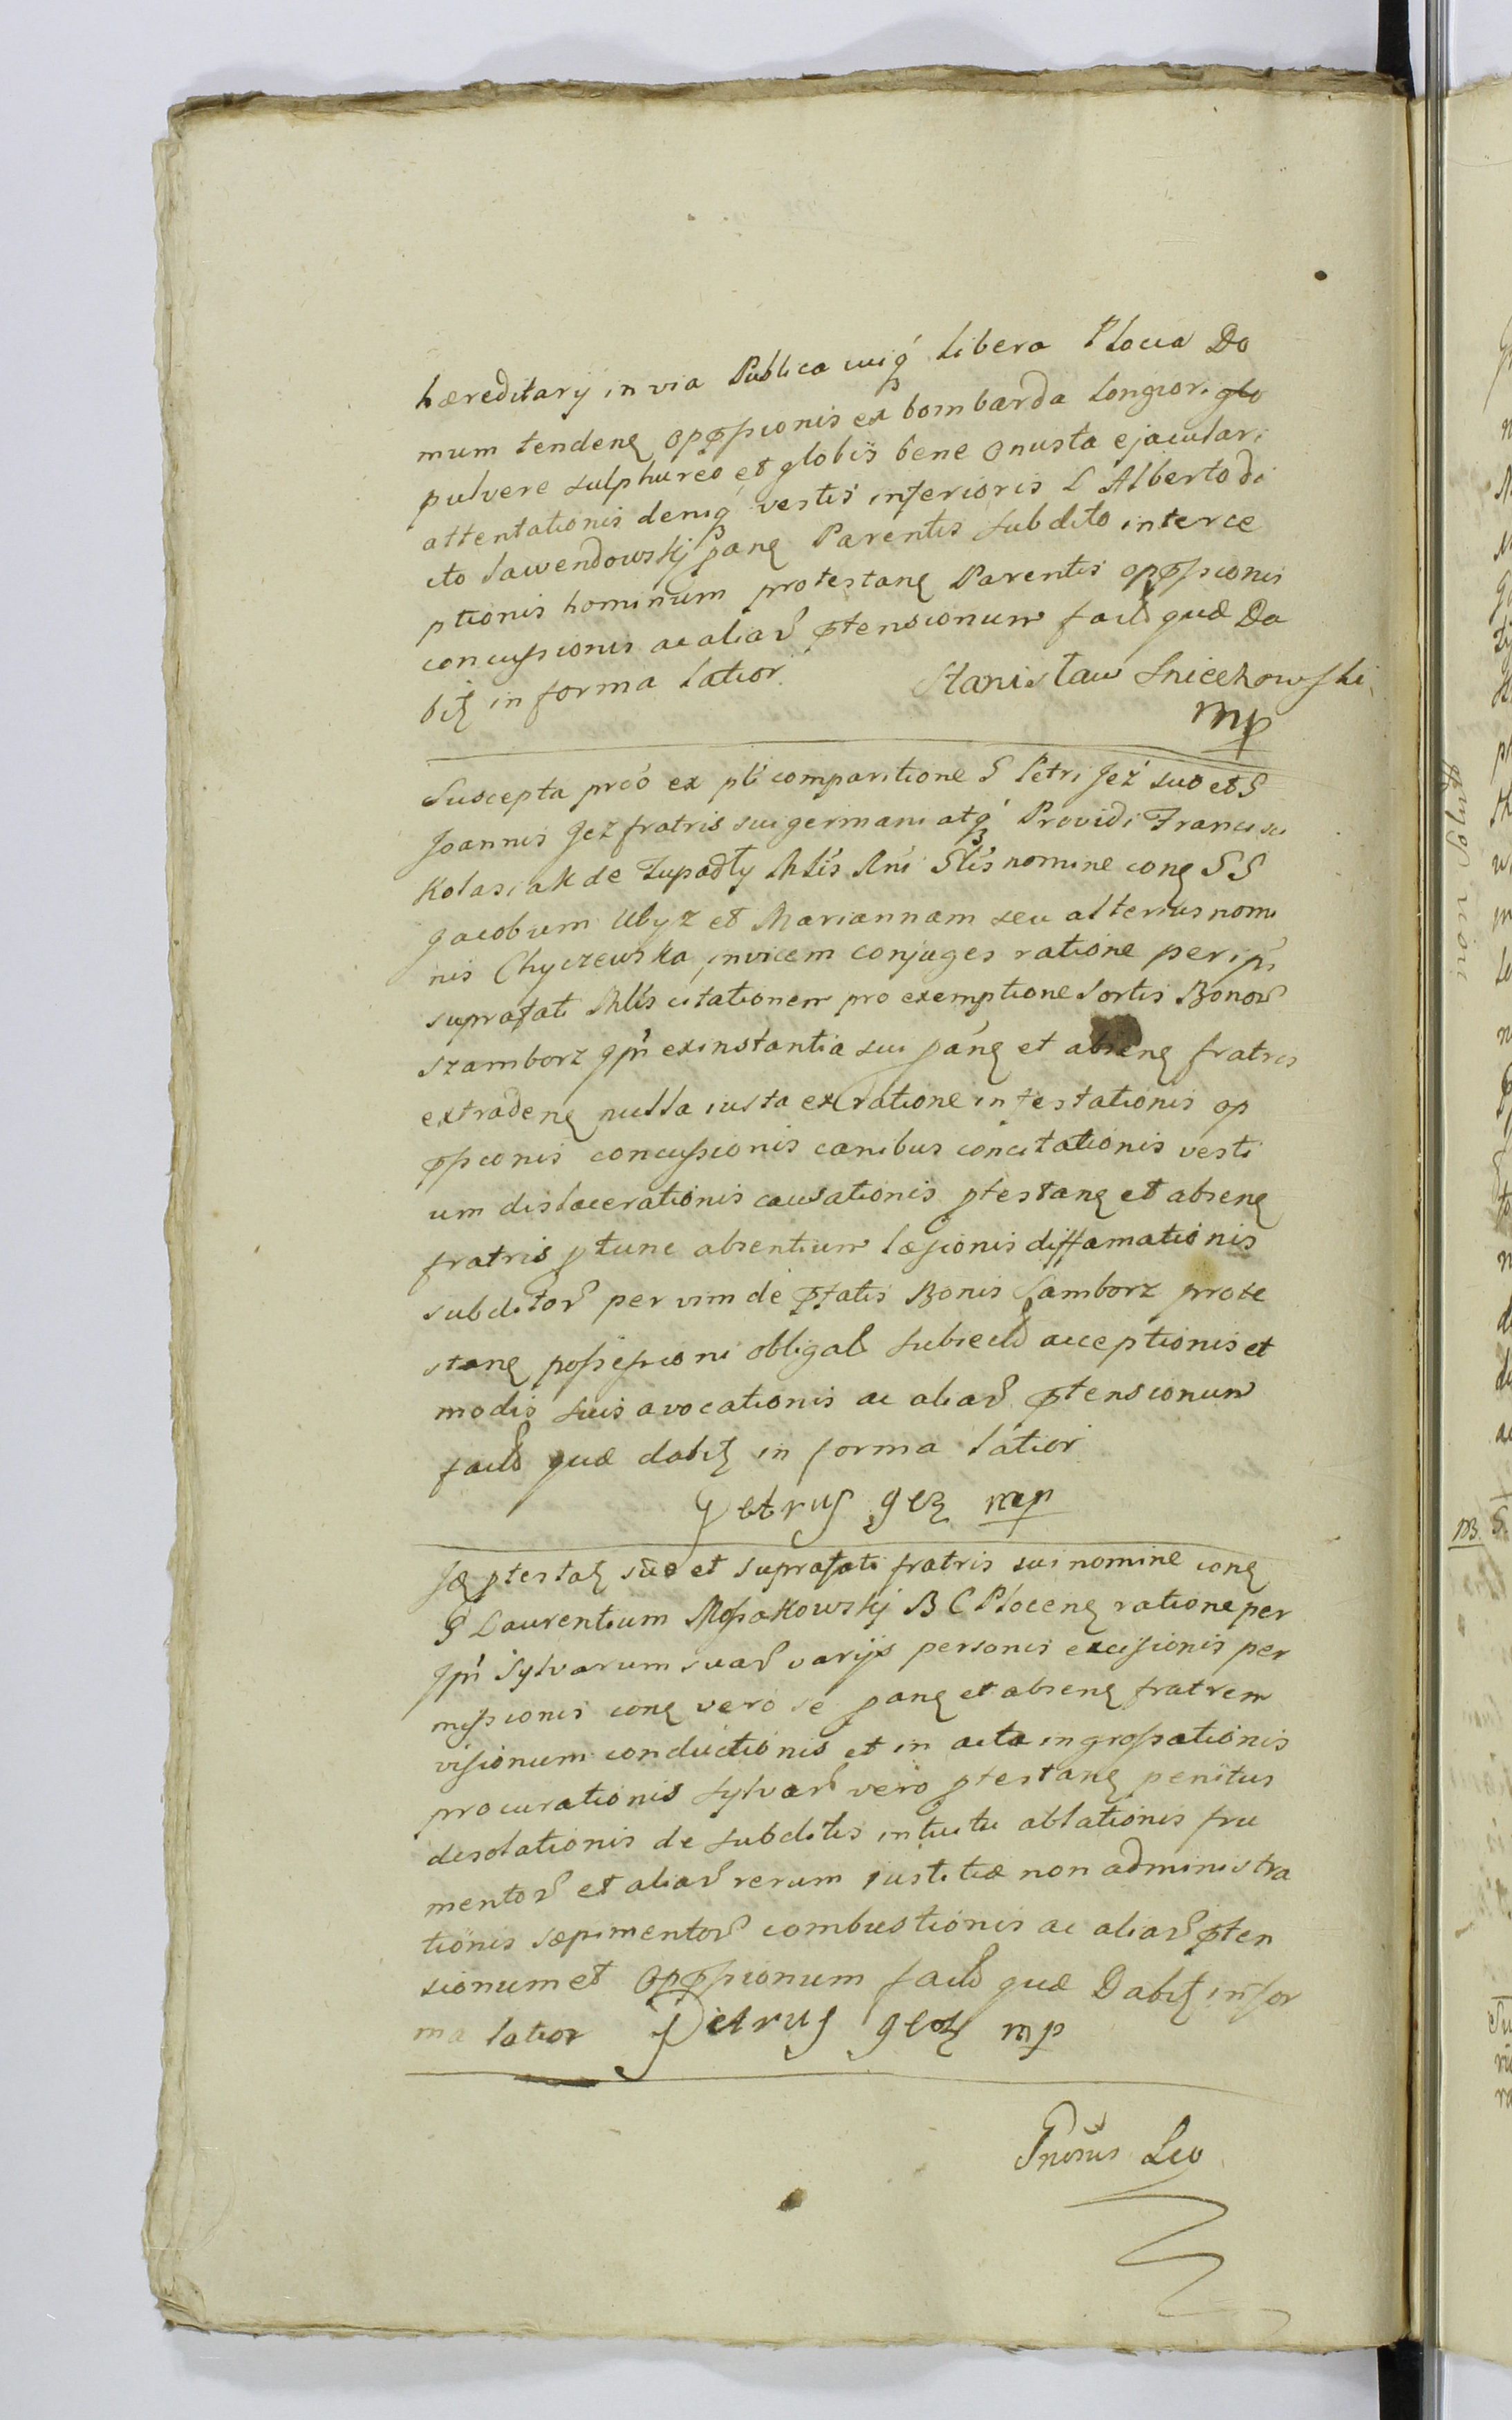 hæreditarij in via Publica cuiq́ libera Plocia Do
mum tendenꝫ oppssionis ex bombarda longiori glo
pulvere sulphureo et globis bene onusta ejaculari
attentationis deniq́ vestis inferioris L Alberto di
cto Lawendowskj pan̄ꝫ Parentis subdito interce
ptionis hominum protestanꝫ Parentis oppssionis
concussionis ac aliar̃ ptensionum fact̃ quæ Da
bitꝫ in forma latior
Stanisław Sniechowski
mp
Suscepta prõo ex pti comparitione G Petri Jeż suo et G
Joannis Jeż fratris sui germani atq́ Providi Francisci
Kolasiak de Zupadły Mlis Ani Glis nomine conꝫ GG
Jacobum Ubyz et Mariannam seu alterius nomi
nis Chyczewska invicem conjuges ratione per ips̄
suprafati Mlis citationem pro exemptione Sortis Bonor̃
Szamborz ips̄ ex instantia sui pan̄ꝫ et absenꝫ fratris
extradenꝫ nulla iusta ex ratione infestationis op
pssionis concussionis canibus concitationis vesti
um dislacerationis causationis ptestanꝫ et absenꝫ
fratris ptunc absentium læsionis diffamationis
subditor̃ per vim de pfatis Bonis Samborz prote
stanꝫ possessioni obligat̃ subiect̃ acceptionis et
modis suis avocationis ac aliar̃ ptensionum
fact̃ quæ dabitꝫ in forma latior
Petrus Jez mp
Jd ptestatꝫ suo et suprafati fratris sui nomine conꝫ
G Laurentium Mossakowskj B C Plocenꝫ ratione per
ips̄ Sylvarum suar̃ varijs personis excisionis per
missionis conꝫ vero se panꝫ et absenꝫ fratrem
visionum conductionis et in acta ingrossationis
procurationis sylvar̃ vero ptestanꝫ penitus
desolationis de subditis intuitu ablationis fru
mentor̃ et aliar̃ rerum iustitiæ non administra
tionis sæpimentor̃ combustionis ac aliar̃ pten
sionum et oppssionum fact̃ quæ Dabitꝫ in for
ma latior Petrus Jez mp